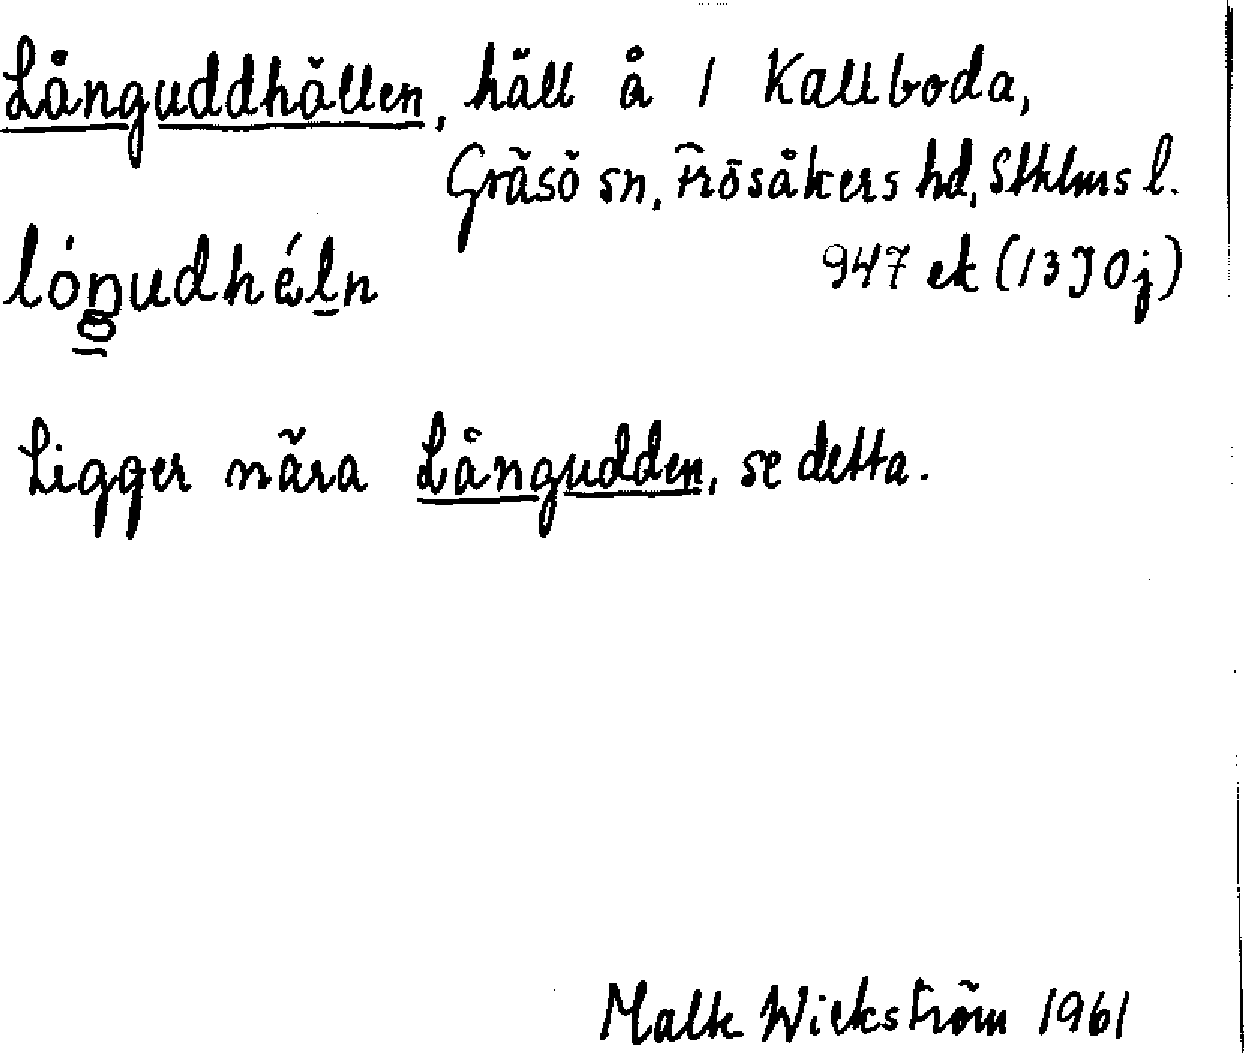 Långuddhällen, häll å 1 Kallboda,
Gräsö sn, Frösåkers hd, Sthlms l.
lóŋudhéln 947 ek (13I0j)
Ligger nära Långudden, se detta.
Malte Wickström 1961